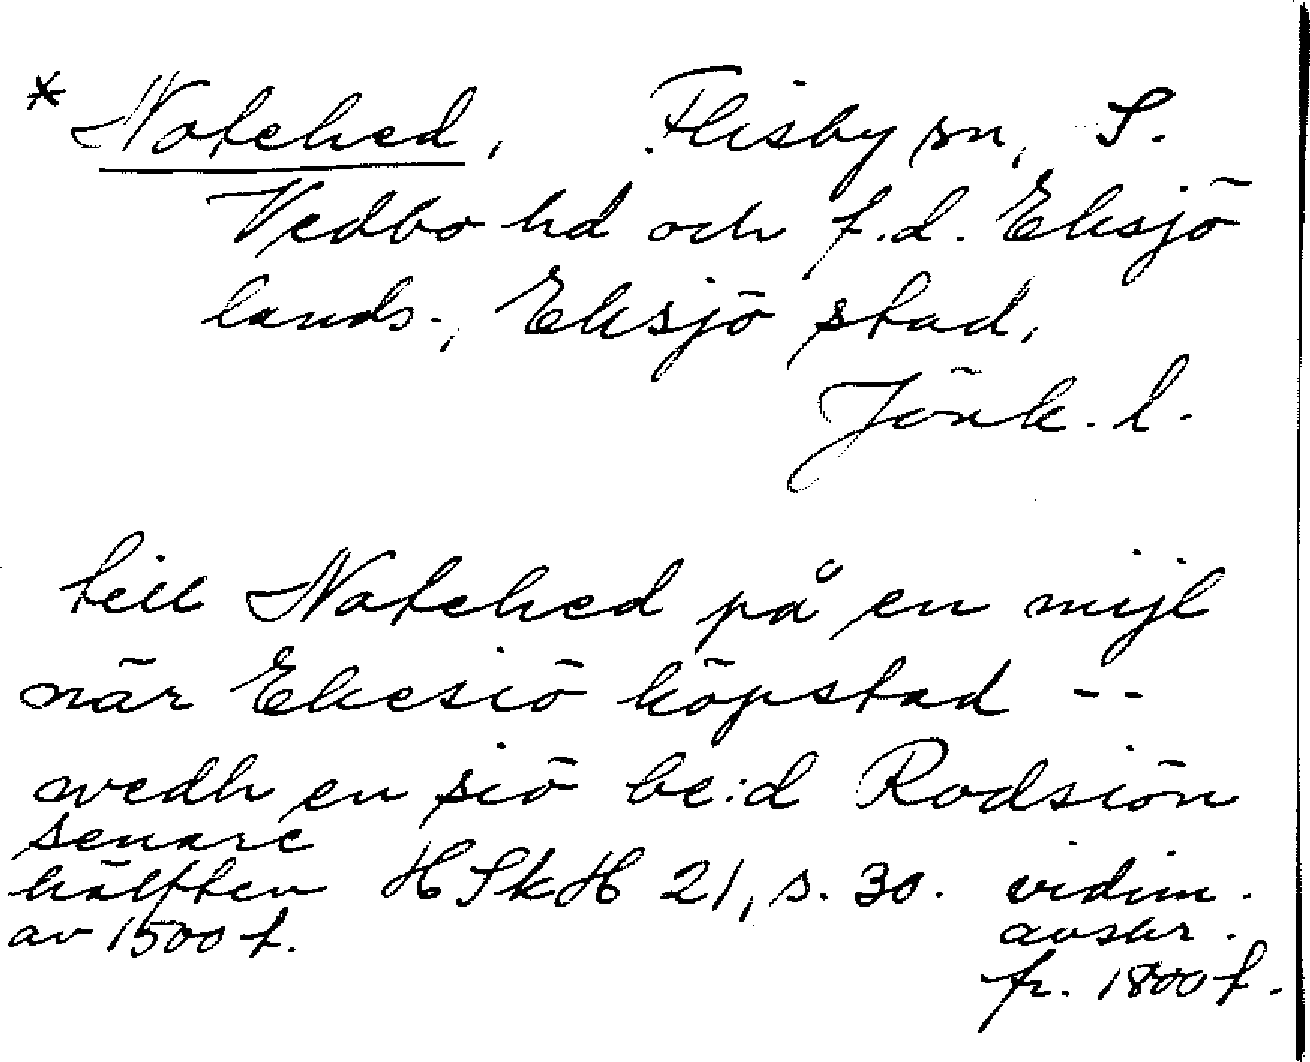 * Notehed, Flisby sn, S.
Vedbo hd och f.d. Eksjö
lands-, Eksjö stad,
Jönk. l.
till Notehed på en mijl
när Ekesiö köpstad --
wedh en siö be:d Rodsiön
senare
hälften HSkH 21, s. 30. vidim.
av 1500 t. avskr.
fr. 1800 t.